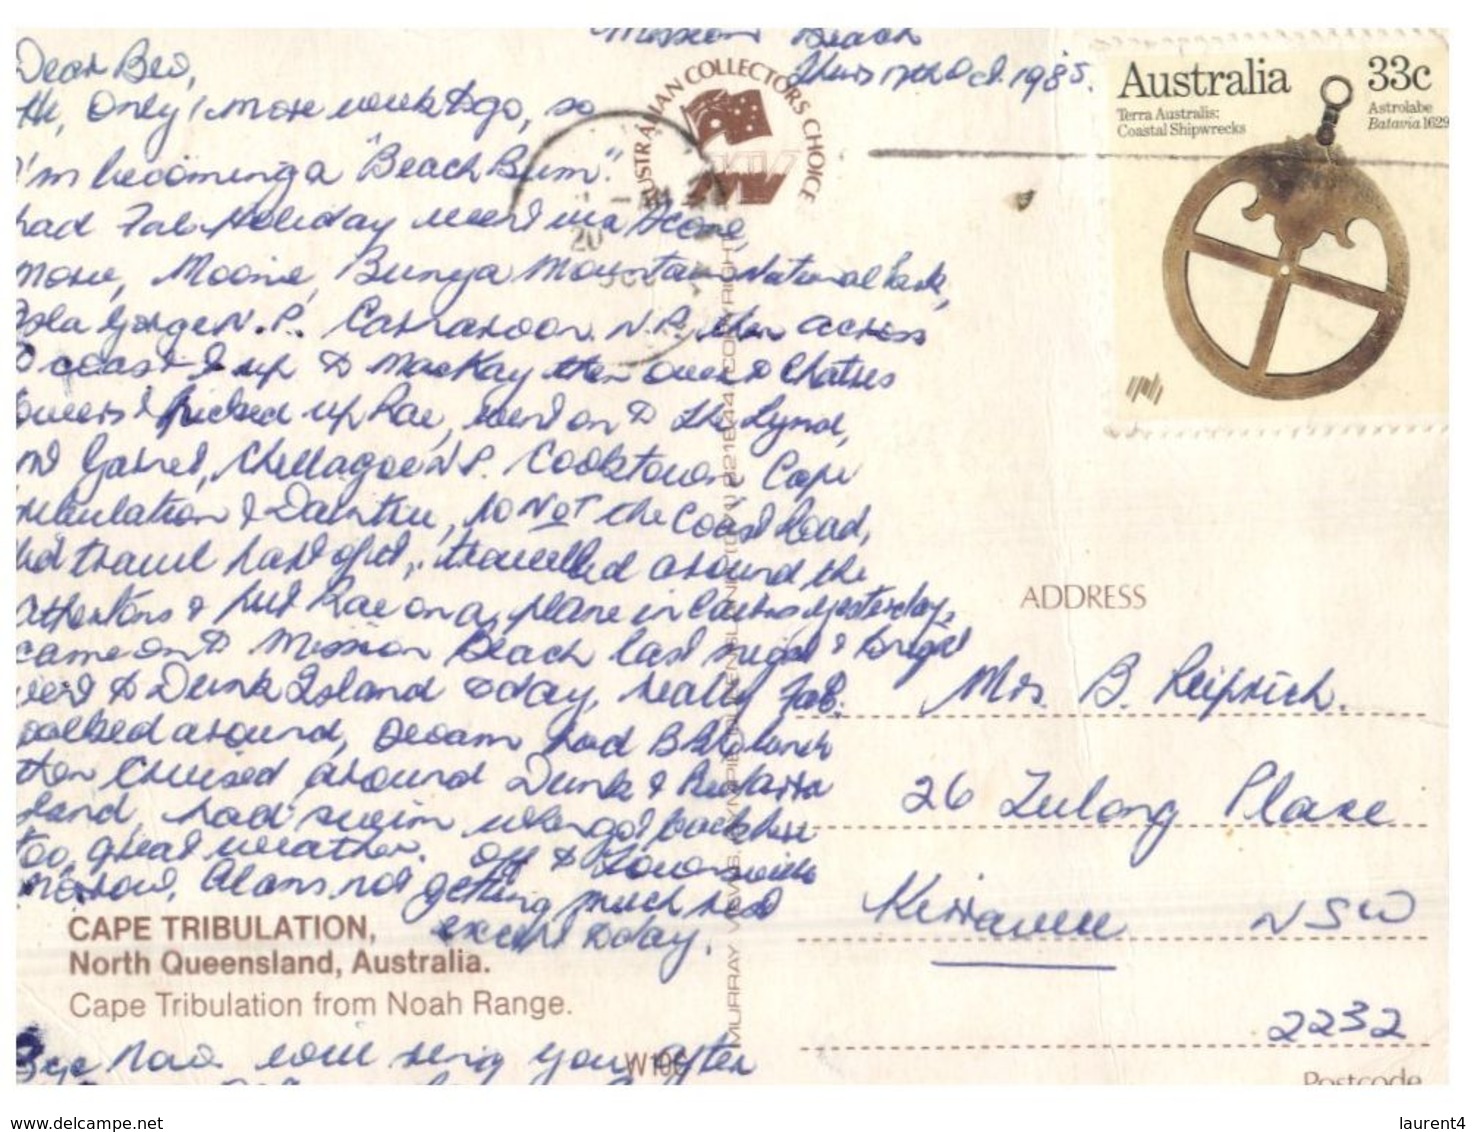 Mission Beach
Thurs 17th Oct. 1985.
Dear Bev,
Hi, Only 1 more week to go, so
I'm becoming a "Beach Bum".
had Fab. Holiday went via
Moonie, Bunya Mountain National Park,
Isla Gorge N.P. Carnarvon N.P. then across
to coast & up to MacKay then over to Charters
Towers & picked up Rae, went on to the Lynd,
Chillagoe N.P. Cooktown, Cape
Tribulation & Daintree, NOT the Coast Road,
travelled around the
Athertons & put Rae on a plane in Cairns yesterday,
came on to Mission Beach last night &
went to Dunk Island today, really fab.
walked around, swam had lunch
then cruised around Dunk &
Island, had swim when got back here
too, great weather. Off to Townsville
morrow, Alans not getting much rest
except today.
Bye now will ring you after
AUSTRALIAN COLLECTORS CHOICE
NV
20
Australia 33c
Terra Australis:
Coastal Shipwrecks
Astrolabe
Batavia 1629
CAPE TRIBULATION,
North Queensland, Australia.
Cape Tribulation from Noah Range.
MURRAY VIEWS, COPYRIGHT
ADDRESS
Mrs. B. Reiprich.
26 Zulong Place
Kirrawee NSW
2232
Postcode
www.delcampe.net
laurent4